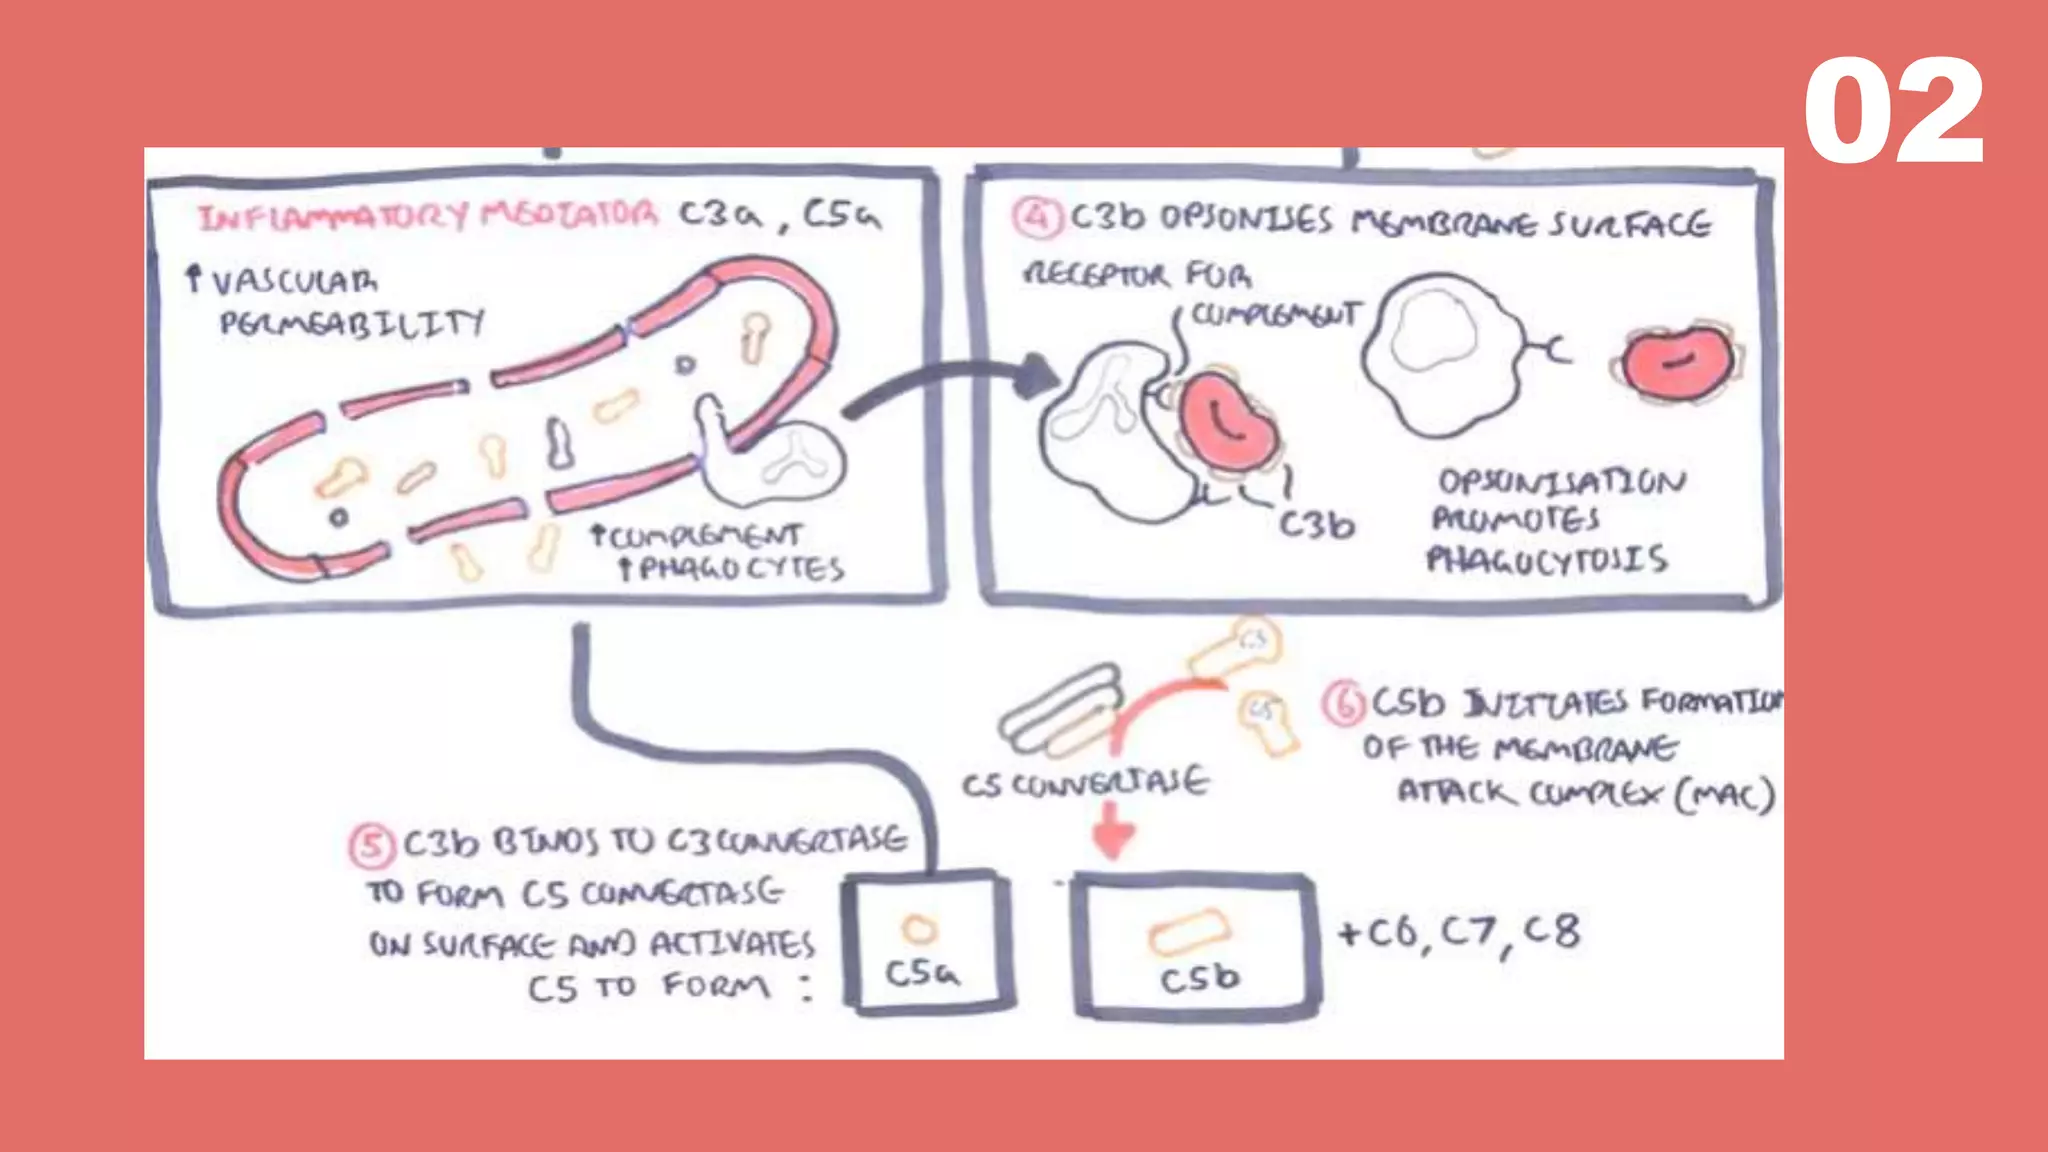 02
INFLAMMATORY MEDIATOR C3a, C5a
↑ VASCULAR
PERMEABILITY
↑ COMPLEMENT
↑ PHAGOCYTES
④ C3b OPSONISES MEMBRANE SURFACE
RECEPTOR FOR
COMPLEMENT
C3b
OPSONISATION
PROMOTES
PHAGOCYTOSIS
C5
C5
C5 CONVERTASE
⑥ C5b INITIATES FORMATION
OF THE MEMBRANE
ATTACK COMPLEX (MAC)
⑤ C3b BINDS TO C3 CONVERTASE
TO FORM C5 CONVERTASE
ON SURFACE AND ACTIVATES
C5 TO FORM :
C5a
C5b
+C6, C7, C8